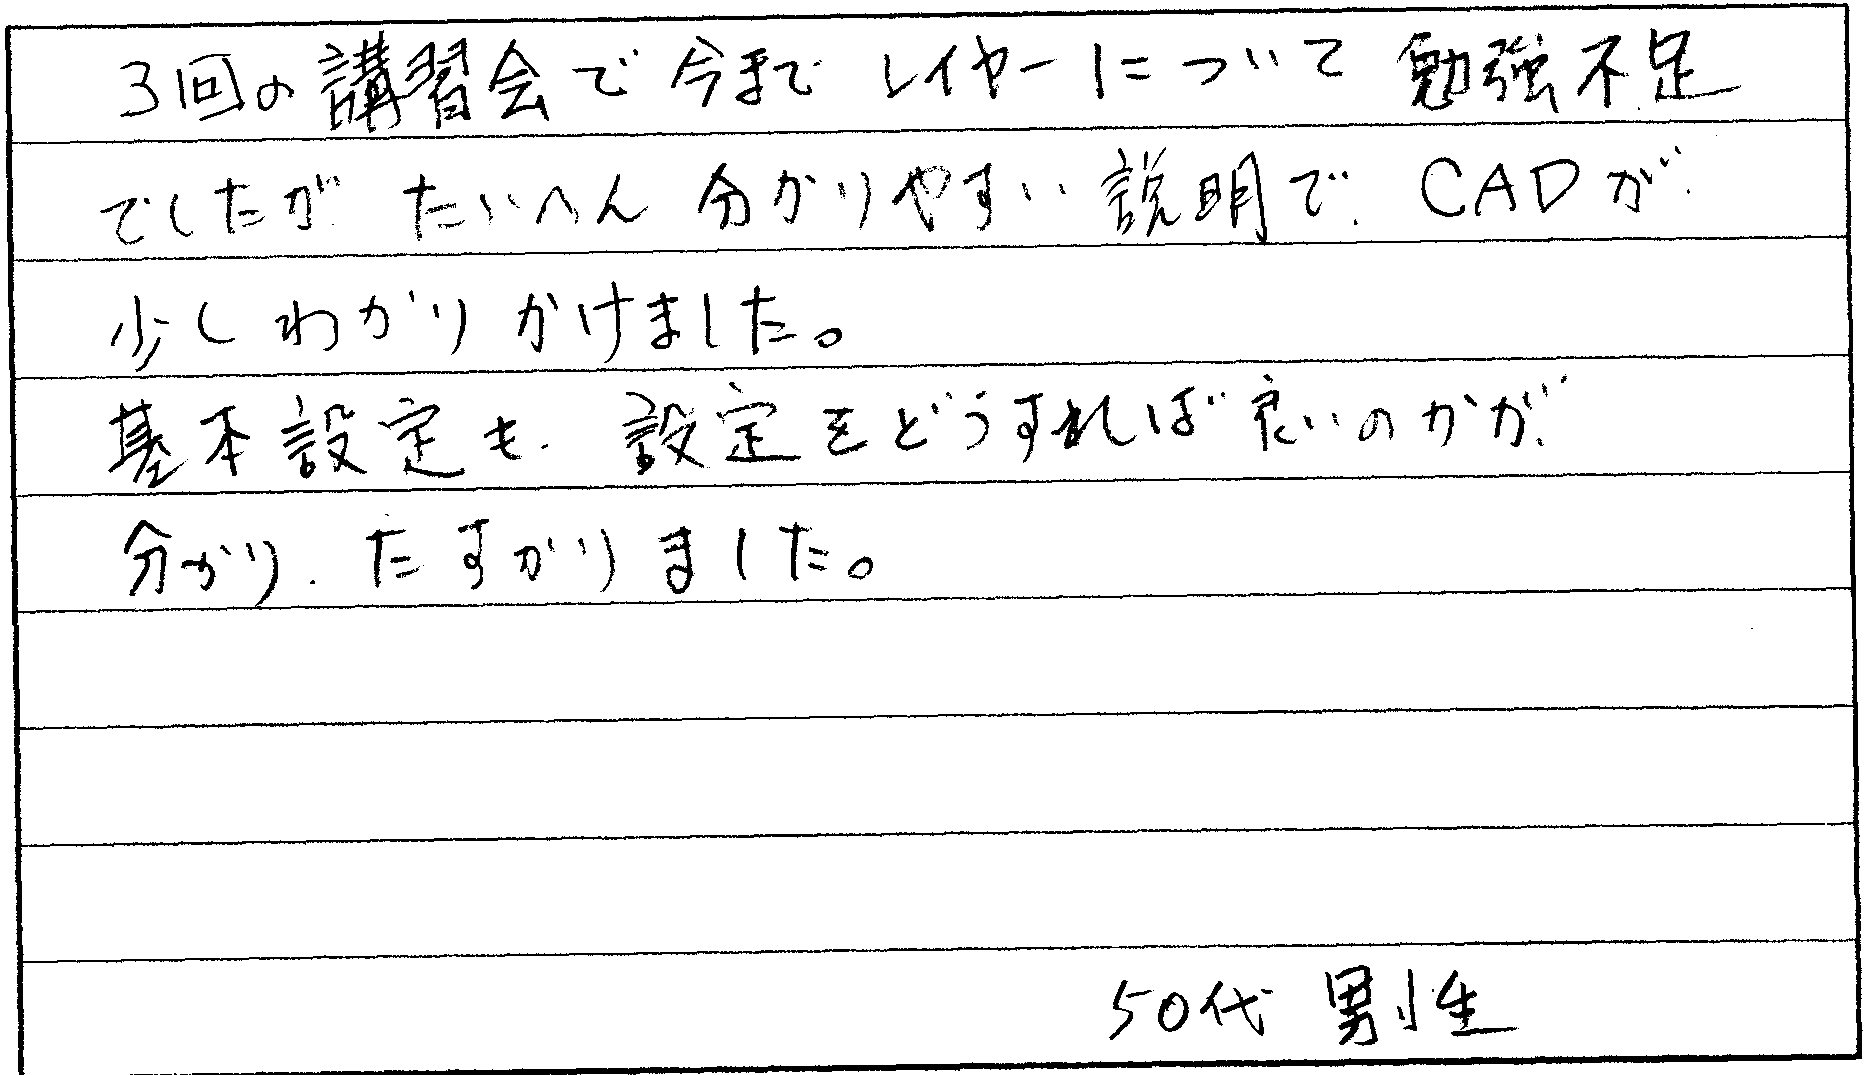 3回の講習会で今まで レイヤーについて 勉強不足
でしたが、たいへん 分かりやすい 説明で、CADが、
少し わかり かけました。
基本設定も、設定をどうすれば良いのかが、
分かり、たすかりました。
50代 男性